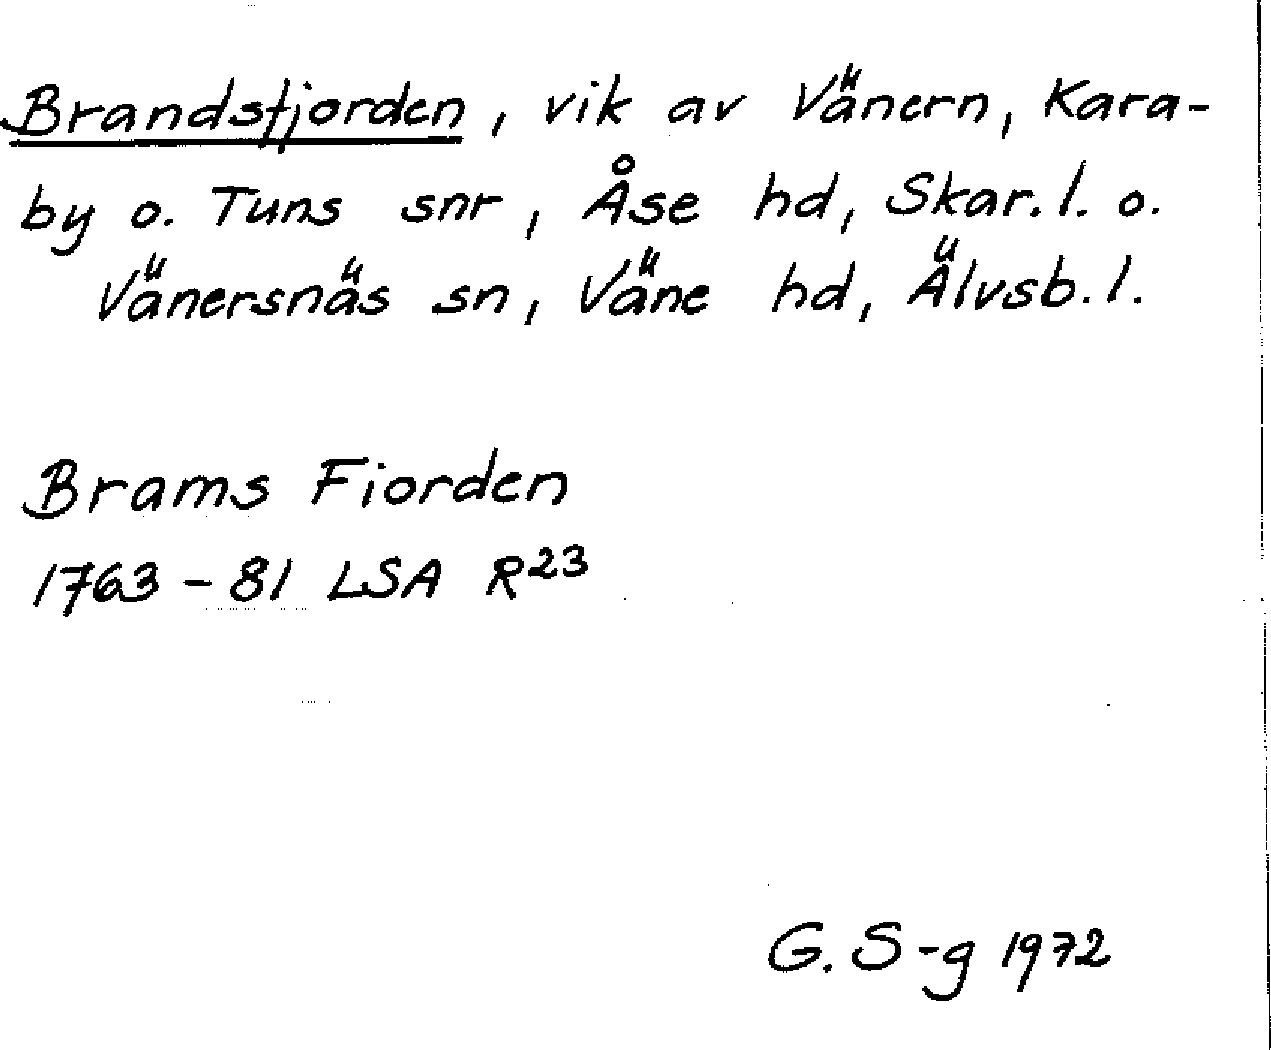 Brandsfjorden, vik av Vänern, Kara-
by o. Tuns snr, Åse hd, Skar. l. o.
Vänersnäs sn, Väne hd, Älvsb. l.
Brams Fiorden
1763-81 LSA R23
G. S-g 1972